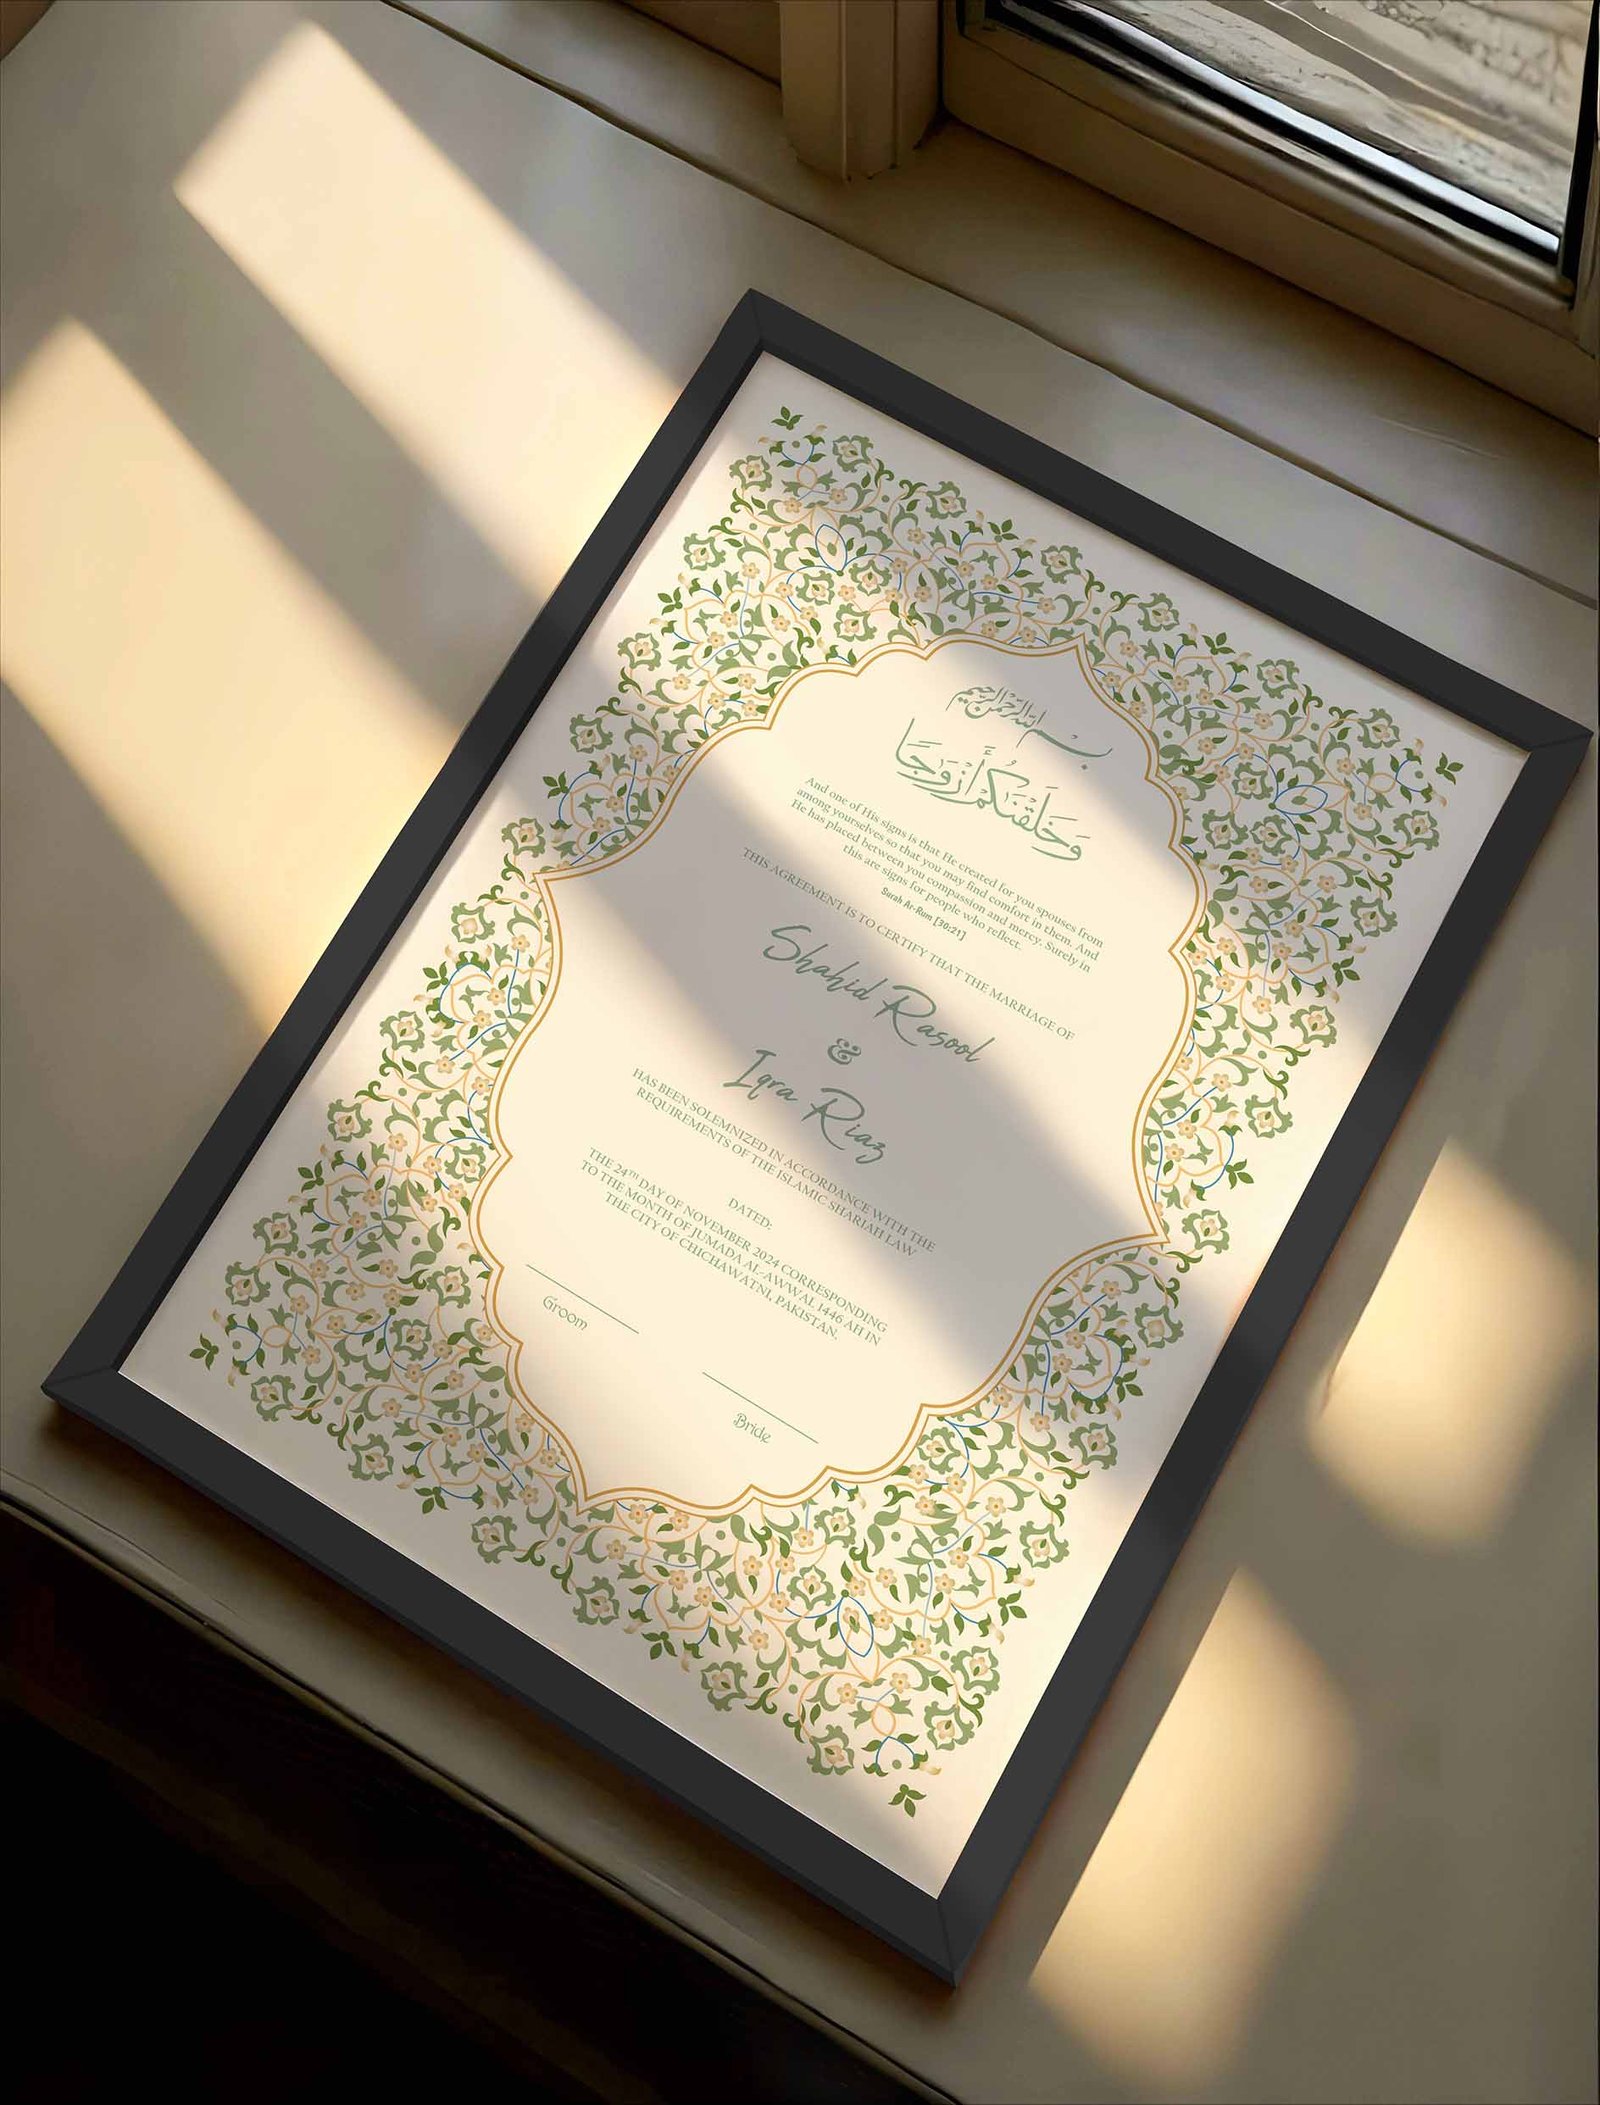 بسم الله الرحمن الرحيم
وَخَلَقْنَٰكُمْ أَزْوَٰجًا
And one of His signs is that He created for you spouses from
among yourselves so that you may find comfort in them. And
He has placed between you compassion and mercy. Surely in
this are signs for people who reflect.
Surah Ar-Rum [30:21]
THIS AGREEMENT IS TO CERTIFY THAT THE MARRIAGE OF
Shahid Rasool
&
Iqra Riaz
HAS BEEN SOLEMNIZED IN ACCORDANCE WITH THE
REQUIREMENTS OF THE ISLAMIC SHARIAH LAW
DATED:
THE 24TH DAY OF NOVEMBER 2024 CORRESPONDING
TO THE MONTH OF JUMADA AL-AWWAL 1446 AH IN
THE CITY OF CHICHAWATNI, PAKISTAN.
Groom
Bride